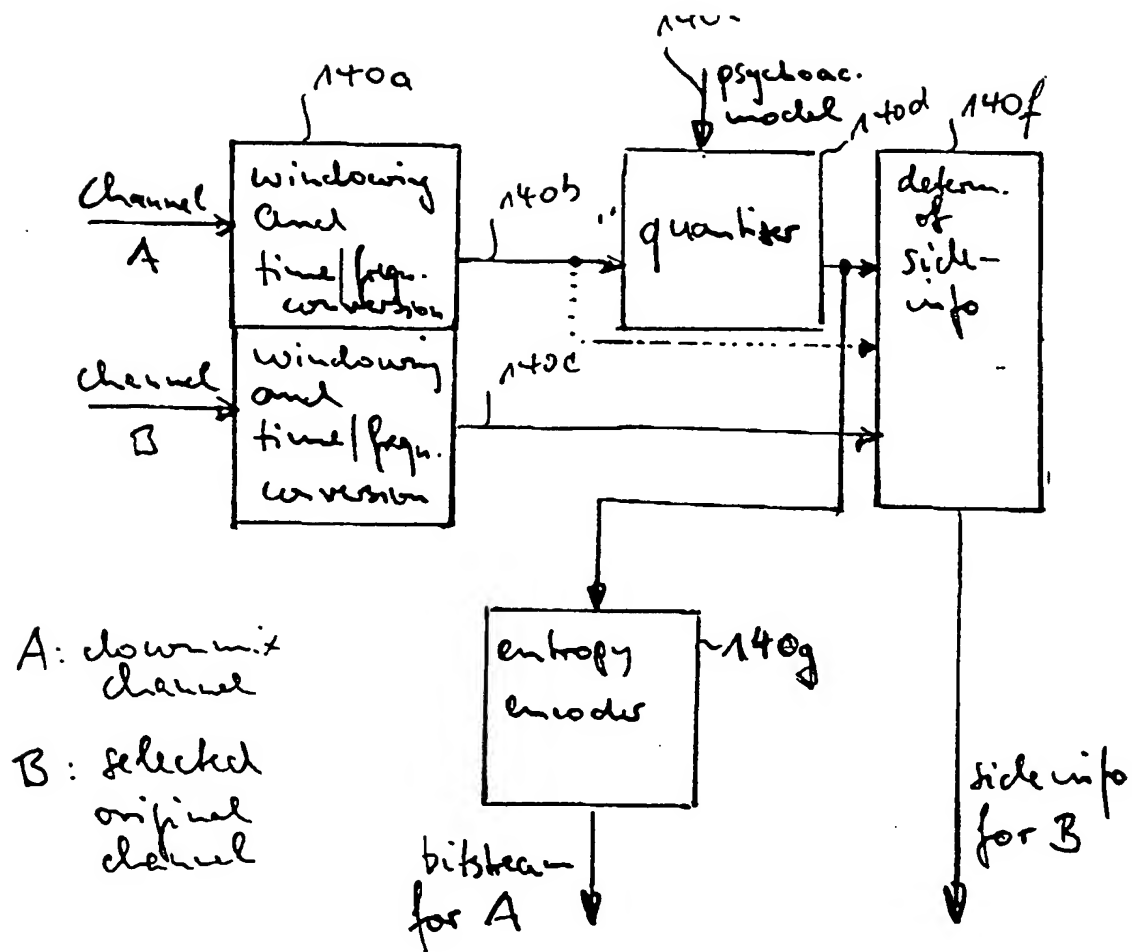 140a
psychoac.
model
140d
140f
Channel
A
windowing
and
time/frequ.
conversion
140b
quantizer
determ.
of
side-
info
channel
B
windowing
and
time/frequ.
conversion
140c
A: downmix
channel
B: selected
original
channel
entropy
encoder
140g
bitstream
for A
side info
for B